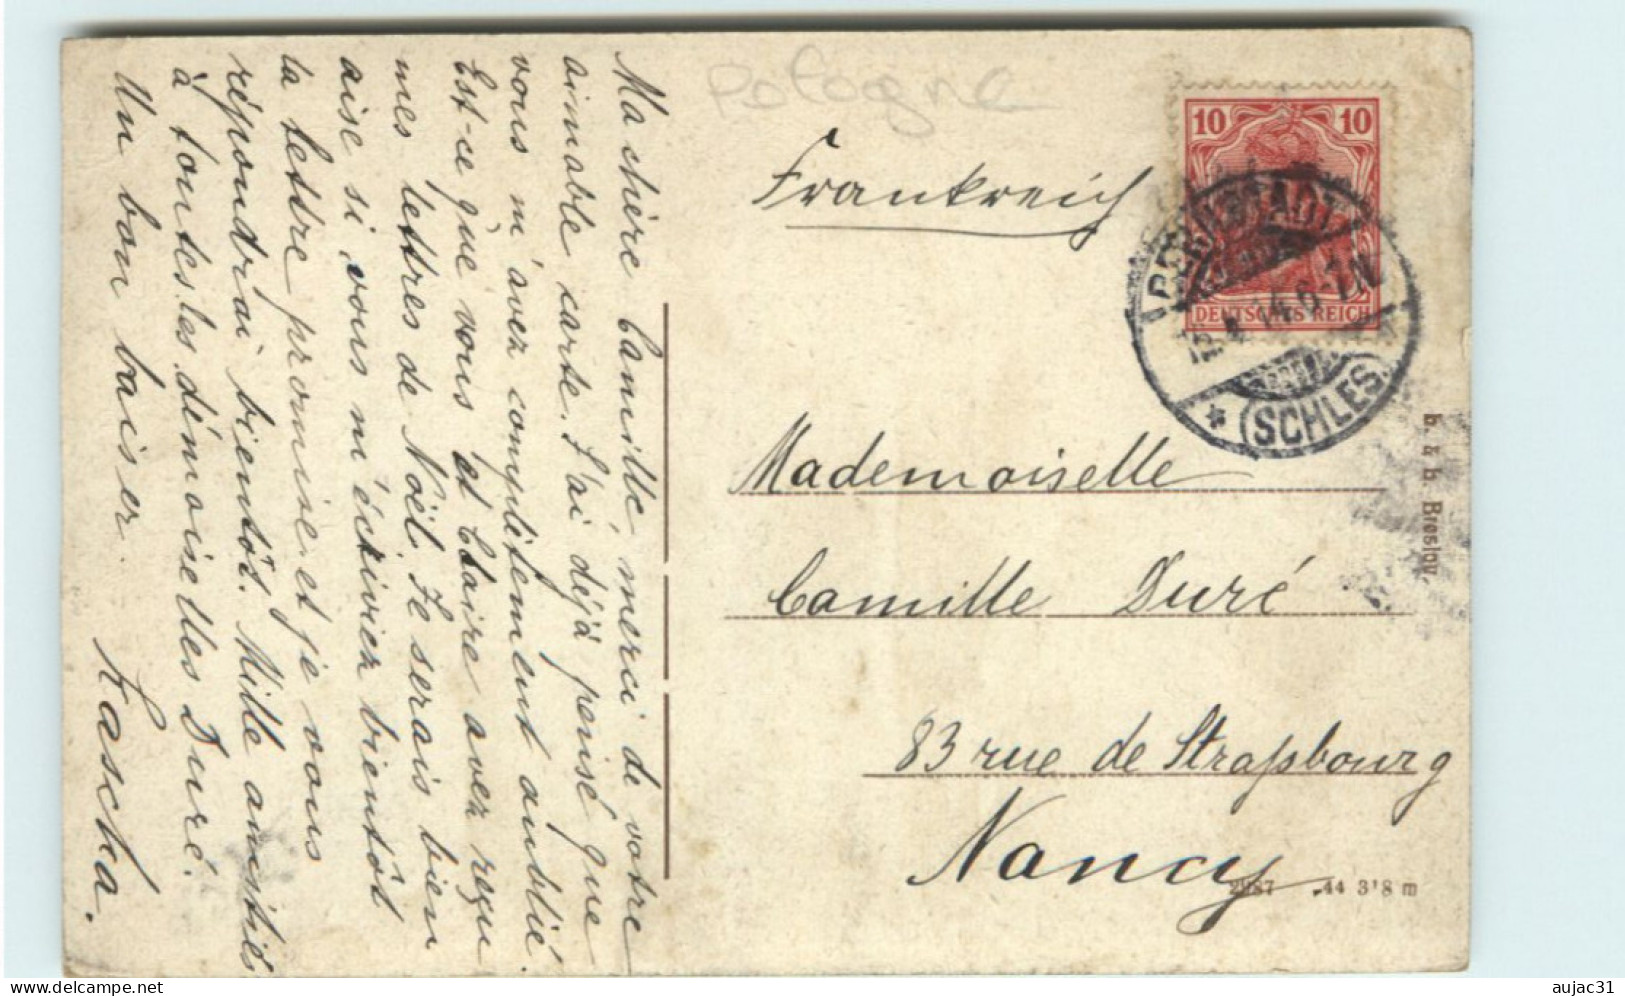 Pologne
Frankreich
10 10
DEUTSCHES REICH
BERNSTADT
14.6-7N
* (SCHLES.)
b. & b. Breslau.
Mademoiselle
Camille Duré
83 rue de Straßbourg
Nancy
2987 44 3'8 m
Ma chière Camille, merci de votre
aimable carte. J'ai déjà pensé que
vous m'avez complitement aublié.
Est-ce que vous et Claire avez reçu
mes lettres de Noël. Je serais bien
aise si vous m'éckiviez bientôt
la lettre promise et je vous
répondrai bientôt. Mille amitiés
à toutes les démoiselles Duré.
Un bon baiser.
Kascha.
aujac31